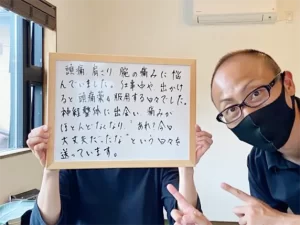 頭痛 肩こり 腕の痛みに悩
んでいました。仕事中や出かけ
ると頭痛薬を服用する日々でした。
神経整体に出会い 痛みが
ほとんどなくなり "あれ？今日
大丈夫だったな" という日々を
送っています。